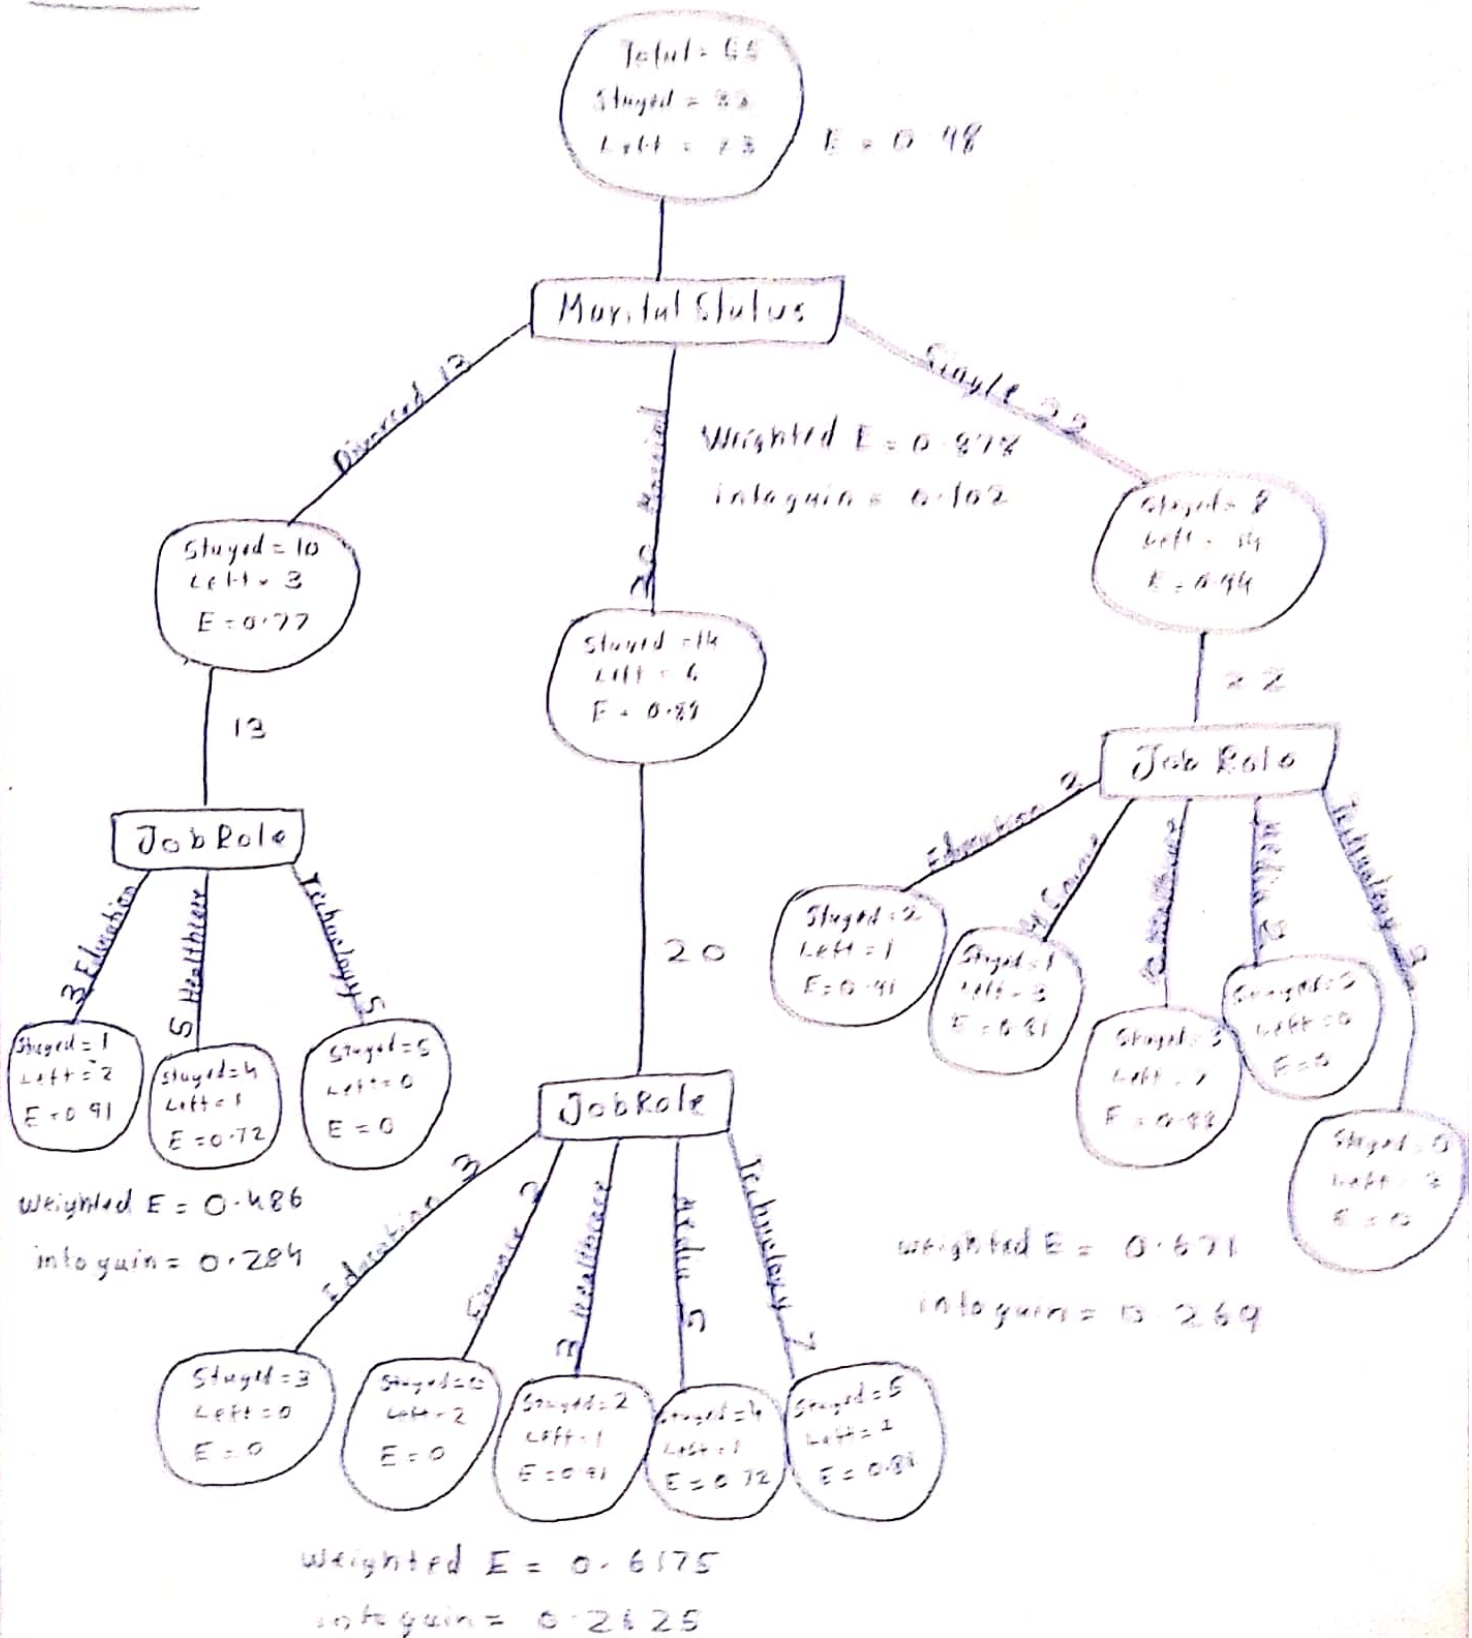 Total = 55
Stayed = 32
Left = 23
E = 0.98
Marital Status
Divorced 13
20 Married
Single 22
Weighted E = 0.878
infogain = 0.102
Stayed = 10
Left = 3
E = 0.77
Stayed = 14
Left = 6
E = 0.88
Stayed = 8
Left = 14
E = 0.94
13
20
22
JobRole
3 Education
5 Healthcare
Technology 5
Stayed = 1
Left = 2
E = 0.91
Stayed = 4
Left = 1
E = 0.72
Stayed = 5
Left = 0
E = 0
Weighted E = 0.486
infogain = 0.284
JobRole
Education 3
Finance 2
3 Healthcare
Media 5
Technology 7
Stayed = 3
Left = 0
E = 0
Stayed = 0
Left = 2
E = 0
Stayed = 2
Left = 1
E = 0.91
Stayed = 4
Left = 1
E = 0.72
Stayed = 5
Left = 2
E = 0.86
Weighted E = 0.6175
infogain = 0.2625
Job Role
Education
Healthcare
Media 2
Technology
Stayed = 2
Left = 1
E = 0.91
Stayed = 1
Left = 3
E = 0.81
Stayed = 3
Left =
Stayed = 2
Left = 0
E = 0
Stayed = 0
Left =
E = 0
weighted E = 0.671
infogain = 0.269